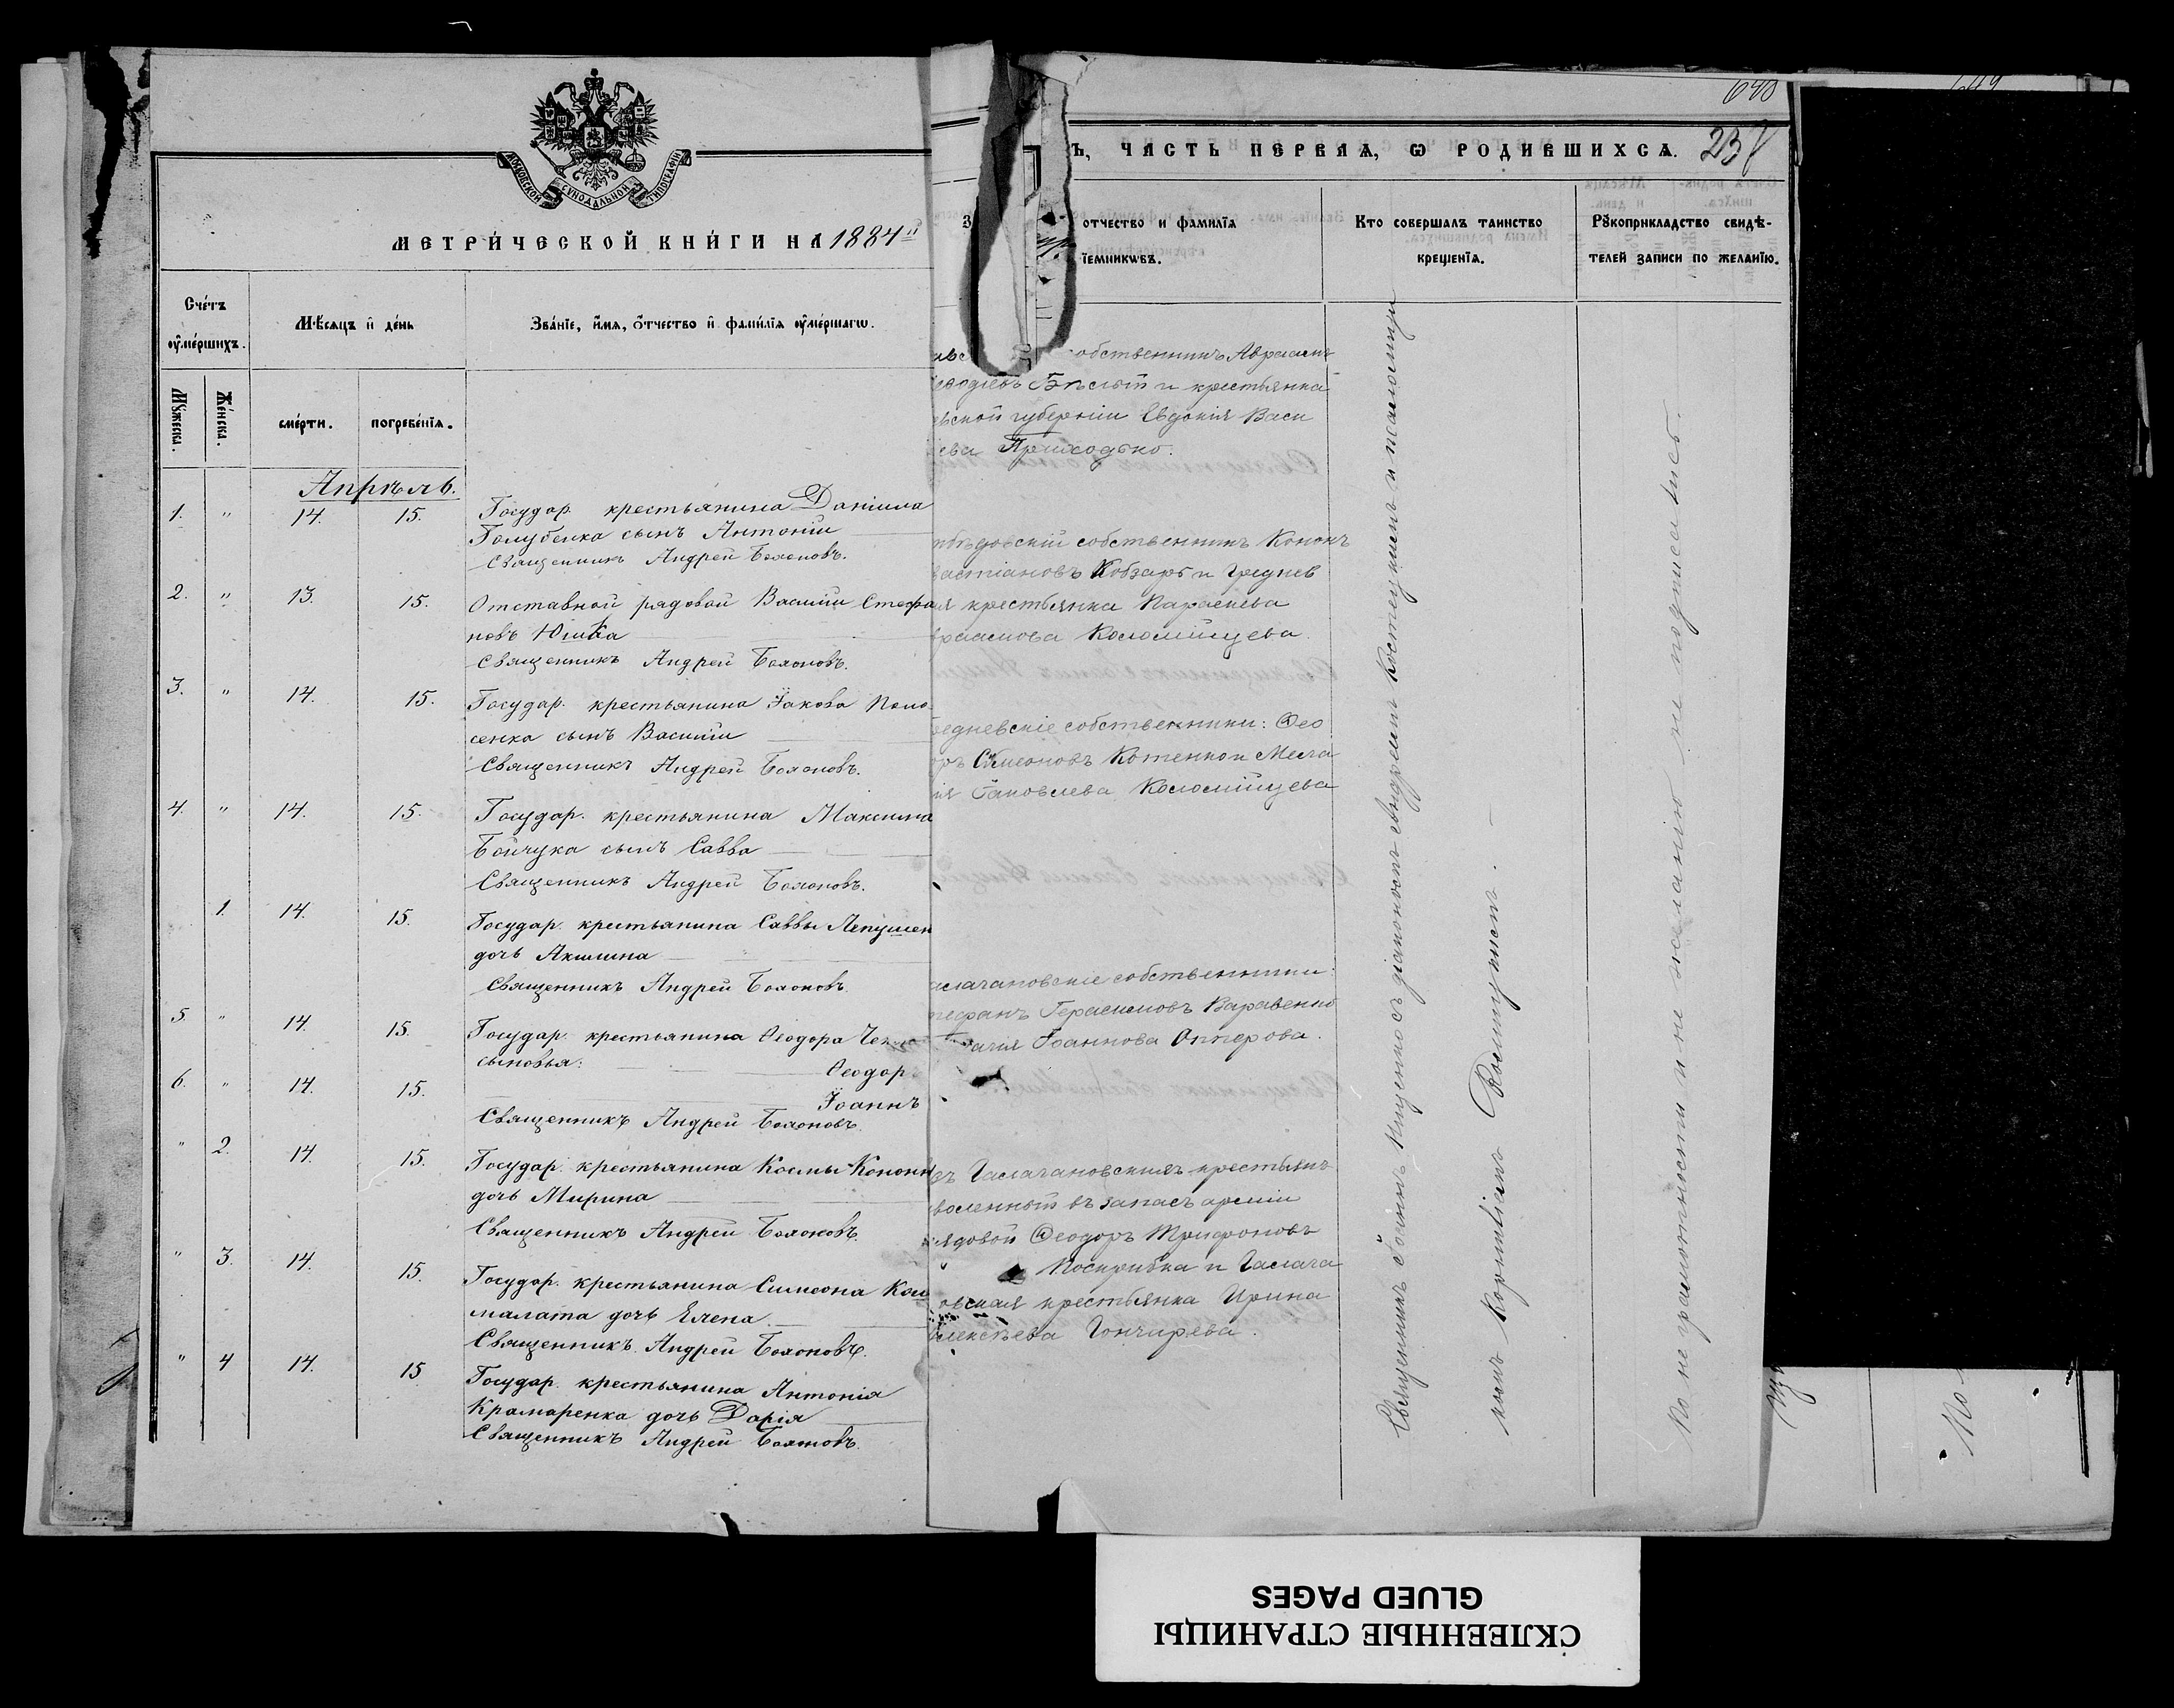 МОСКОВСКОЙ СѴНОДАЛЬНОЙ ТИПОГРАФІИ
МЕТРИ́ЧЕСКОЙ КНИ́ГИ НА 1884й
Сче́тъ ᲂу҆ме́ршихъ.
Мѣ́сяцъ и҆ де́нь
Зва́ніе, и҆́мя, ѻ҆́тчество и҆ фами́лія ᲂу҆ме́ршагѡ.
Мꙋ́жеска.
Же́нска.
сме́рти.
погребе́нїя.
Апрѣль.
1. " 14. 15. Государ. крестьянина Даніила
Голубенка сынъ Антоній
Священникъ Андрей Бояновъ.
2. " 13. 15. Отставной рядовой Василій Стефа
новъ Юшка
Священникъ Андрей Бояновъ.
3. " 14. 15. Государ. крестьянина Іакова
сенка сынъ Василій
Священникъ Андрей Бояновъ.
4. " 14. 15. Государ. крестьянина Максима
Бойчука сынъ Савва
Священникъ Андрей Бояновъ.
1. 14. 15. Государ. крестьянина Саввы Лепушен
дочь Акилина
Священникъ Андрей Бояновъ.
5. " 14. 15. Государ. крестьянина Ѳеодора
сыновья: Ѳеодор
6. " 14. 15. Іоаннъ
Священникъ Андрей Бояновъ.
" 2. 14. 15. Государ. крестьянина Космы Конон
дочь Мирина
Священникъ Андрей Бояновъ.
" 3. 14. 15. Государ. крестьянина Симеона
малата дочь Елена
Священникъ Андрей Бояновъ.
" 4 14. 15 Государ. крестьянина Антонія
Крамаренка дочь Дарія
Священникъ Андрей Бояновъ.
640
649
Ъ, ЧАСТЬ ПЕРВАЯ, Ѡ РОДИВШИХСЯ. 238
отчество и фамилїя
їемникѡвъ.
Кто совершалъ таинство
крещенїя.
Рꙋкоприкладство свидѣ-
телей записи по желанїю.
обственникъ Авраамъ
еѳодіевъ Бѣлый и крестьянка
ской губерніи Евдокія Васи
ева Приходько.
бѣдовскій собственникъ Кононъ
вастіановъ Кобзарь и Греднев
ая крестьянка Параскева
враамова Коломійцева.
редневскіе собственники: Ѳео
оръ Симеоновъ Котенко и Мела
ія Іаковлева Коломійцева
аслачановскіе собственники:
тефанъ Герасимовъ Варавенко
Іоаннова Оптерова.
ъ Гаслачановскихъ крестьянъ
воленный въ запасъ арміи
рядовой Ѳеодоръ Трифоновъ
Поскрибка и Гаслача
овская крестьянка Ирина
Алексѣева Гончарева.
Священникъ Іоаннъ Ищенко съ діакономъ Андреемъ Костецкимъ и псаломщи
комъ
По неграмотности и не желанію не подписались.
По
СКЛЕЕННЫЕ СТРАНИЦЫ
GLUED PAGES